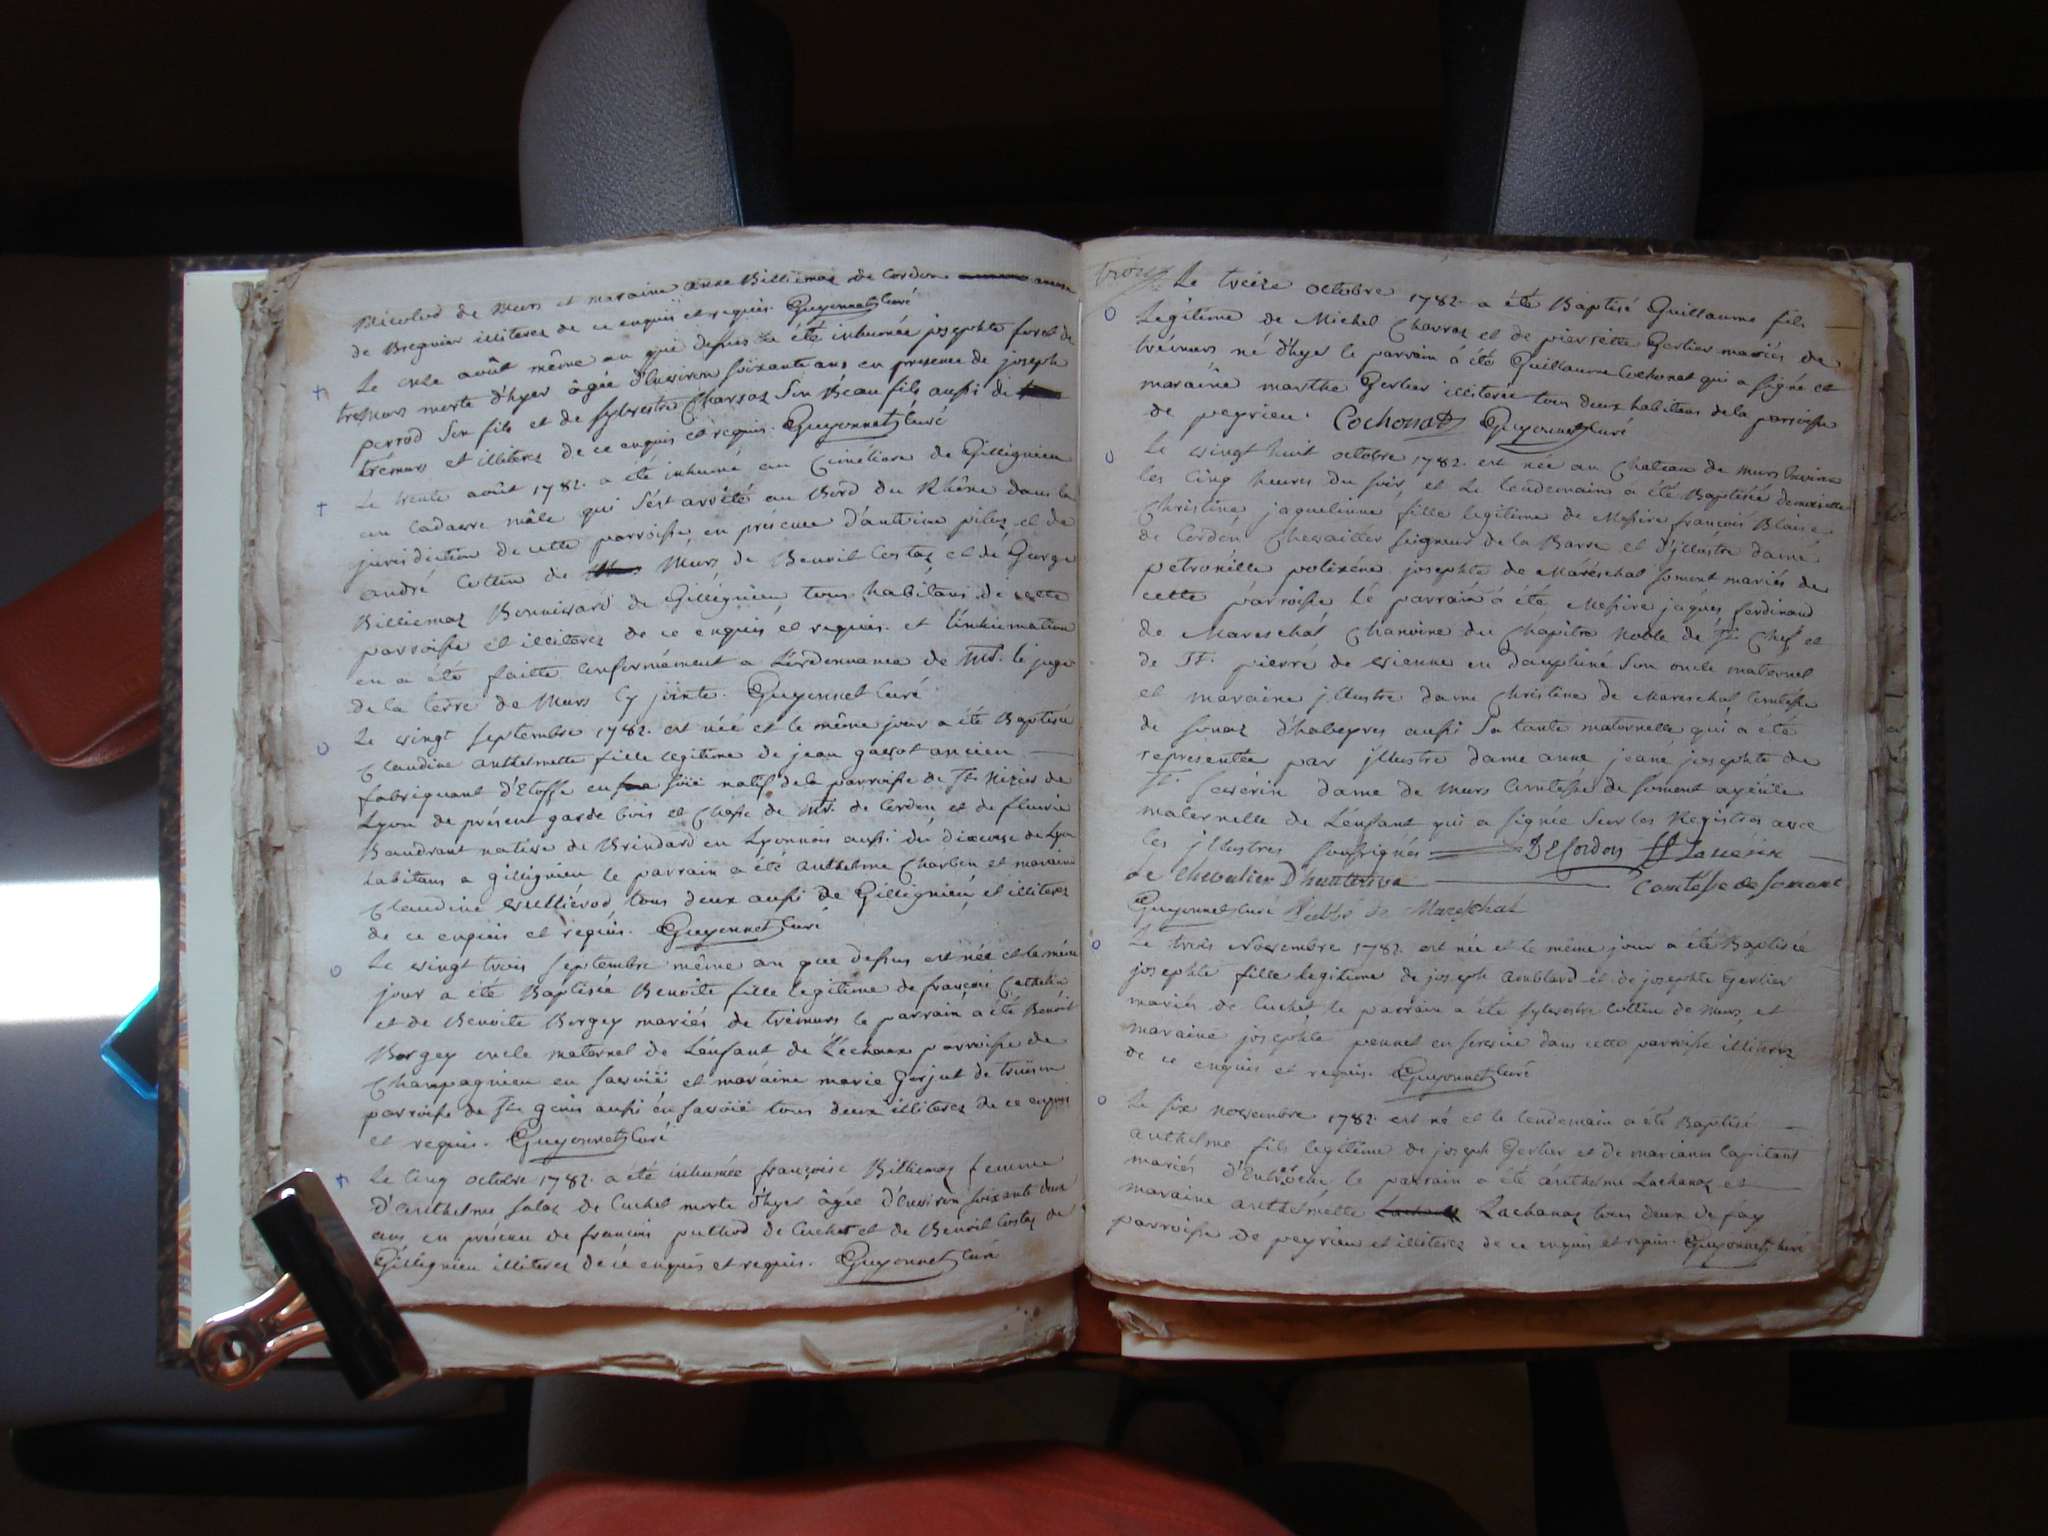 Nicolod de Murs et maraine anne Billiemaz de Cordon
de Bregnier illiterez de ce enquis et requis. Guyonnet Curé
Le onze août même an que dessus a été inhumée josephte de
tremurs morte d'hyer âgée d'environ soixante ans en presence de joseph
perrod son fils et de sylvestre Charvaz son Beau fils aussi de
trémurs et illiterez de ce enquis et requis. Guyonnet Curé
Le trente août 1782. a été inhumé au Cimetiere de Gillignieu
un Cadavre mâle qui s'ést arrété au Bord du Rhône dans la
jurisdiction de cette parroisse, en présence d'antoine pilaz et de
andré Cottin de Murs de Benoit Costaz et de George
Billiemaz Bonnivard de Gillignieu tous habitans de cette
parroisse et illiterez de ce enquis et requis. et l'inhumation
en a été faitte Conformément a L'ordonnance de Mr. le juge
de la terre de Murs Cy jointe. Guyonnet Curé
Le vingt septembre 1782. est née et le même jour a été Baptisée
Claudine anthelmette fille legitime de jean gavot ancien
fabriquant d'Etoffe en soïë natif de la parroisse de St. Nizier de
Lyon de présent garde bois et Chasse de Mr. de Cordon et de fleurie
Baudrant native de Brindard en Lyonnois aussi du dioceze de Lyon
habitans a gillignieu le parrain a été anthelme Charbin et maraine
Claudine vulliérod tous deux aussi de Gillignieu et illiterez
de ce enquis et requis. Guyonnet Curé
Le vingt trois septembre même an que dessus est née et le même
jour a été Baptisée Benoite fille legitime de françois Cathelin
et de Benoite Borgey mariés de trémurs le parrain a été Benoit
Borgey oncle maternel de L'enfant de Léchaux parroisse de
Champagnieu en savoïë et maraine marie Gorjut de truison
parroisse de St. genis aussi en savoïë tous deux illiterez de ce enquis
et requis. Guyonnet Curé
Le Cinq octobre 1782. a été inhumée françoise Billiemaz femme
D'anthelme salaz de Cuchet morte d'hyer âgée d'environ soixante deux
ans en présence de francois pullud de Cuchet et de Benoit Costaz de
Gillignieu illiterez de ce enquis et requis. Guyonnet Curé
Le treize octobre 1782. a été Baptisé Guillaume fils
Légitime de Michel Charvaz et de pierrette Gerlier mariés de
trémurs né d'hyer le parrain a été Guillaume Cochonat qui a signé et
maraine marthe Gerlier illiterée tous deux habitans de la parroisse
de peyrieu. Cochonat Guyonnet Curé
Le vingt huit octobre 1782. est née au Chateau de murs Environ
les Cinq heures du soir, et Le Lendemain a été Baptisée demoiselle
Christine jaqueline fille legitime de Messire françois Blaise
de Cordon Chevailler seigneur de la Barre et d'jllustre dame
petronille polixéne josephte de Maréschal somont mariés de
cette parroisse Le parrain a été Messire jaques ferdinand
de Mareschal Chanoine du Chapitre Noble de St. Chef et
de St. pierre de vienne en dauphiné son oncle maternel
et maraine jllustre dame Christine de Mareschal Comtesse
de sonaz d'habeyres aussi sa tante maternelle qui a été
representée par jllustre dame anne jeane josephte de
St. sevérin dame de Murs Comtesse de somont ayeule
maternelle de L'enfant qui a signée sur les Registres avec
les jllustres soussignés DE Cordon
Le Chevalier Comtesse de somont
Guyonnet Curé L'abbé de Mareschal
Le trois Novembre 1782. est née et le même jour a été Baptisée
josephte fille legitime de joseph amblard et de josephte Gerlier
mariés de Cuchet, le parrain a été sylvestre Cottin de Murs, et
maraine josephte pennet en service dans cette parroisse illiterez
de ce enquis et requis. Guyonnet Curé
Le six novembre 1782. est né et le lendemain a été Baptisé
anthelme fils legitime de joseph Gerlier et de marianne Capitant
mariés d'Entroche le parrain a été anthelme Lachanaz et
maraine anthelmette Lachanaz tous deux de fay
parroisse de peyrieu et illiterez de ce enquis et requis. Guyonnet Curé